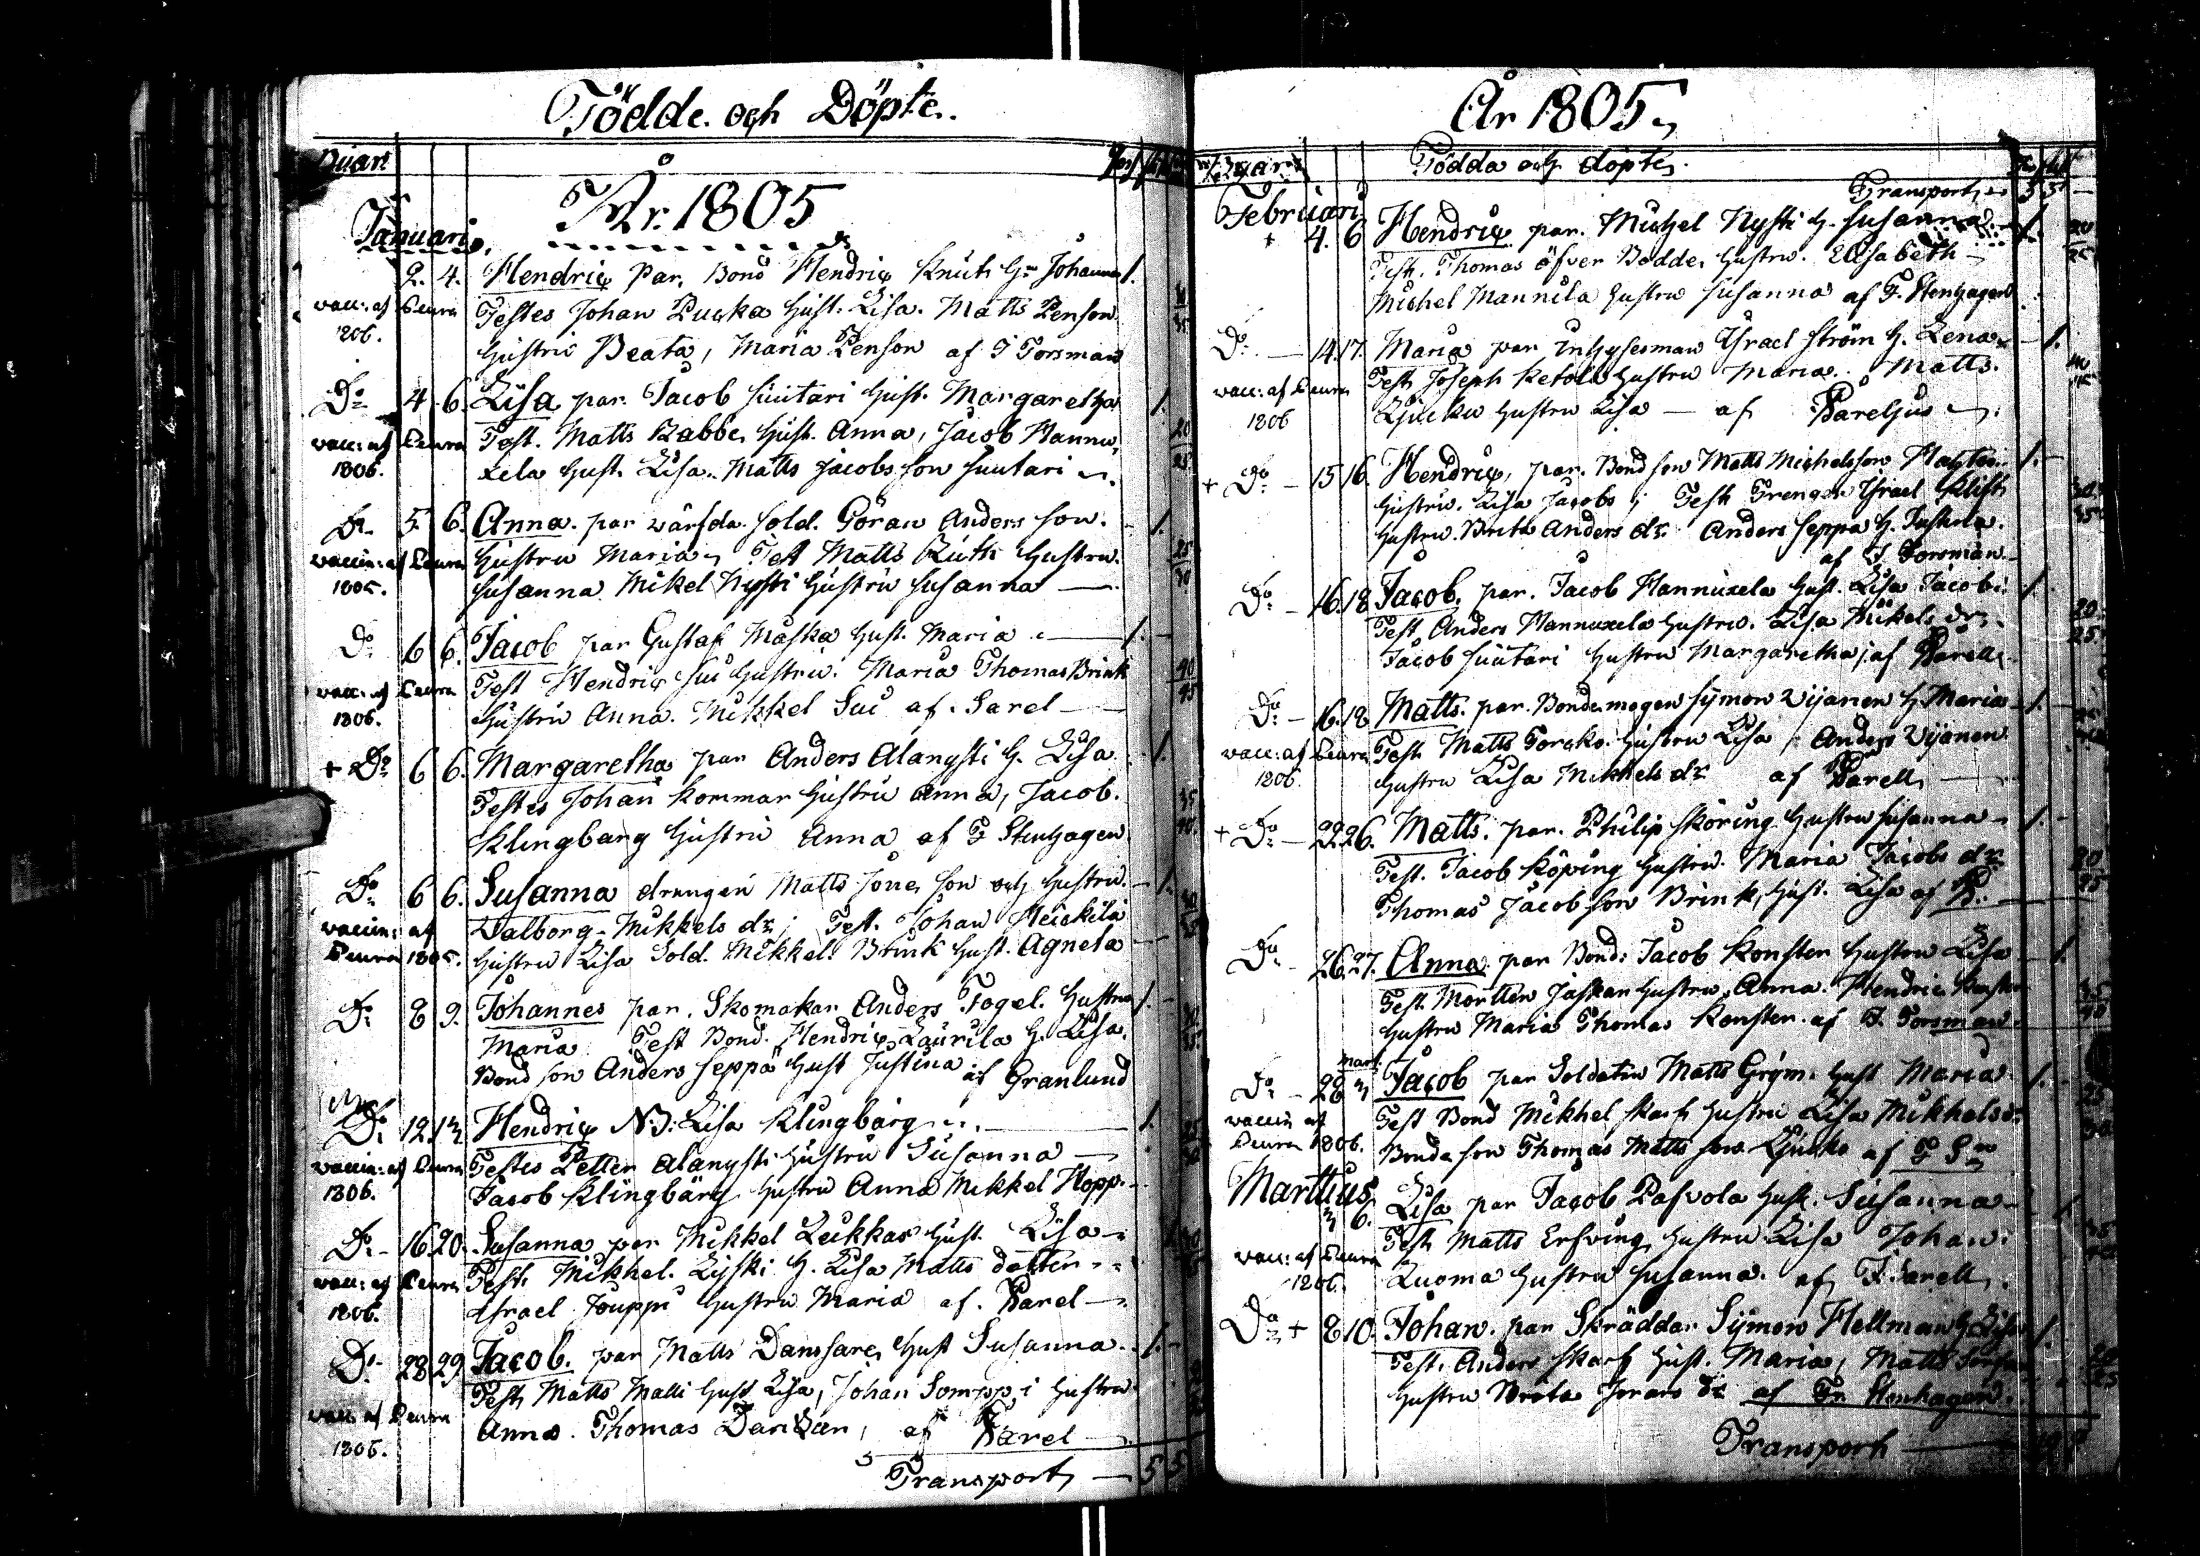 Födde och Döpte.
År 1805
Januari.
2. 4. Hendric Par. Bond Hendric Knuts Hr Johanna 1.
vacc: af Leura Testes Johan Pucka Hust. Lisa. Matts Penson
1806. Hustru Beata, Maria Penson af F Forsman
Do 4 6. Lisa par. Jacob Suutari Hust. Margaretha 1.
vacc: af Leura Test. Matts Rabbe, Hust. Anna, Jacob Hannu,
1806. xela Hust. Lisa. Matts Jacobs son Suutari
Do 5. 6. Anna. par värfda sold. Göran Anders son. 1.
vaccin: af Leura Hustru Maria, Test Matts Hustru.
1805. Susanna Mikel Nysti Hustru Susanna
Do 6 6. Jacob par Gustaf Maska Hust. Maria 1.
vacc: af Leura Test Hendric Sui Hustru. Maria Thomas Brink
1806. Hustru Anna. Mikkel Sui af. Sarel
+ Do 6 6. Margaretha par Anders Alanysti H. Lisa 1.
Testes Johan Kommar Hustru Anna, Jacob.
Klingbarg Hustru Anna af F Stenhagen
Do 6 6. Susanna drengen Matts Jone, son och Hustru. 1.
vaccin: af Valborg Mikkels dr; Test. Johan Heickilä
Leura 1805. Hustru Lisa Sold. Mikkel Brink Hust. Agneta
Do 8 9. Johannes par. Skomakar Anders Fogel. Hustru 1.
Maria Test Bond. Hendric Laurila H. Lisa.
Bond son Anders Seppä Hust Justina af Granlund
Do 12 13 Hendric N.J: Lisa Klingbärg 1.
vaccin: af Leura Testes Petter Alanysti Hustru Susanna
1806. Jacob Klingbärg Hustru Anna Mikkel Hopp.
Do 16 20. Susanna par Mikkel Luckkar Hust. Lisa
vacc: af Leura Test. Mikkel. Lyski H. Lisa Matts dotter
1806. Israel Jouppi Hustru Maria af. Karel
Do 28 29 Jacob. par Matts Danssare, Hust Susanna. 1.
vacc. af Leura Test Matts Malli Hust Lisa, Johan Somppi Hustru
1806. Anna. Thomas af Karel
Transport 5 5
År 1805.
Födda och döpte.
Transport 5 5
Februari
+ 4. 6 Hendric par. Michel Nysti H. Susanna 1.
Test. Thomas öfver Bodde, Hustru. Elisabeth
Michel Mannila Hustru Susanna af F. Stenhagen
Do 14 17. Maria par Inhysesman Israel Ström H. Lena 1.
vacc: af Leura Test Joseph Ketola Hustru Maria. Matts.
1806 Hustru Lisa af Kareljus
+ Do 15 16. Hendric, par. Bond son Matts Michelsson 1.
Hustru. Lisa Jacobs; Test Drengen Israel
Hustru Brita Anders dr. Anders Seppä H. Justina.
af F Forsman
Do 16. 18 Jacob, par. Jacob Hannuxela Hust. Lisa Jacobs. 1.
Test, Anders Hannuxela Hustru. Lisa Mikels dr.
Jacob Suutari Hustru Margaretha; af Karell
Do 16. 18 Matts. par. Bondemagen Symon Vijanen H. Maria 1.
vacc: af Leura Test Matts Forsko. Hustru Lisa, Anders Vijanen
1806. Hustru Lisa Mikkels dr af Karell
+ Do 22 26. Matts. par. Philip Sköring Hustru Susanna 1.
Test. Jacob Köping Hustru. Maria Jacobs dr.
Thomas Jacobson Brink, Hust. Lisa af K.
Do 26. 27. Anna par Bond: Jacob Konster Hustru Lisa 1.
Test Mortten Jaskan Hustru Anna. Hendric Konster
Hustru Maria Thomas Konster af F. Forsman.
mart.
Do 28 3 Jacob par Soldaten Matts Grym. Hust Maria 1.
vaccin af Test Bond Mikkel Skarf Hustru Lisa Mikkels dr
Leura 1806. Bonda son Thomas Matts son af F Sn
Martius
3 6. Lisa par Jacob Pasvola Hust. Susanna 1.
vacc: af Leura Test Matts Erfving Hustru Lisa Johan:
1806. Luoma Hustru Susanna. af F Karell.
Do + 8 10. Johan. par Skräddar Symon Hellman H Lisa 1.
Test. Anders Skarf Hust. Maria, Matts
Hustru Brita dr af Fr. Stenhagen.
Transport